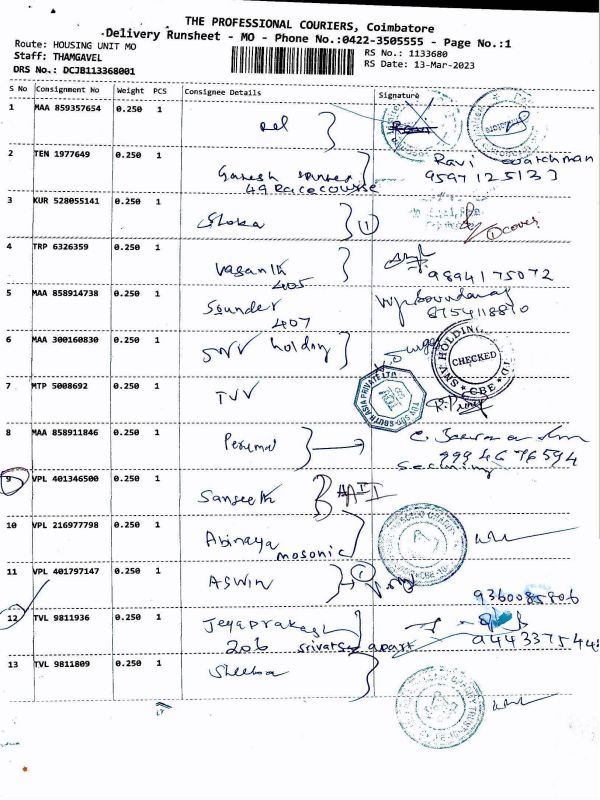 THE PROFESSIONAL COURIERS, Coimbatore
Delivery Runsheet - MO - Phone No.:0422-3505555 - Page No.:1
Route: HOUSING UNIT MO
RS No.: 1133680
Staff: THAMGAVEL
RS Date: 13-Mar-2023
DRS No.: DCJB113368001
S No Consignment No Weight PCS Consignee Details Signature
1 MAA 859357654 0.250 1
2 TEN 1977649 0.250 1 Ganesh Ravi watchman
49 Racecourse 9597125133
3 KUR 528055141 0.250 1 Sloka 1 1 cover
4 TRP 6326359 0.250 1 Vasanth
405 9894175072
5 MAA 858914738 0.250 1 Sounder
407 8754118870
6 MAA 300160830 0.250 1 SNV holding
SNV HOLDING CHECKED CBE
7 MTP 5008692 0.250 1 TUV TUV SUD SOUTH ASIA PRIVATE LTD
8 MAA 858911846 0.250 1 Perumal
9994676594
9 VPL 401346500 0.250 1 Sangeeth
10 VPL 216977798 0.250 1 Abinaya
mosonic
11 VPL 401797147 0.250 1 ASWIN 1
9360085806
12 TVL 9811936 0.250 1 Jeyaprakash
206 srivatsa apart 9443375443
13 TVL 9811809 0.250 1 Sheeba